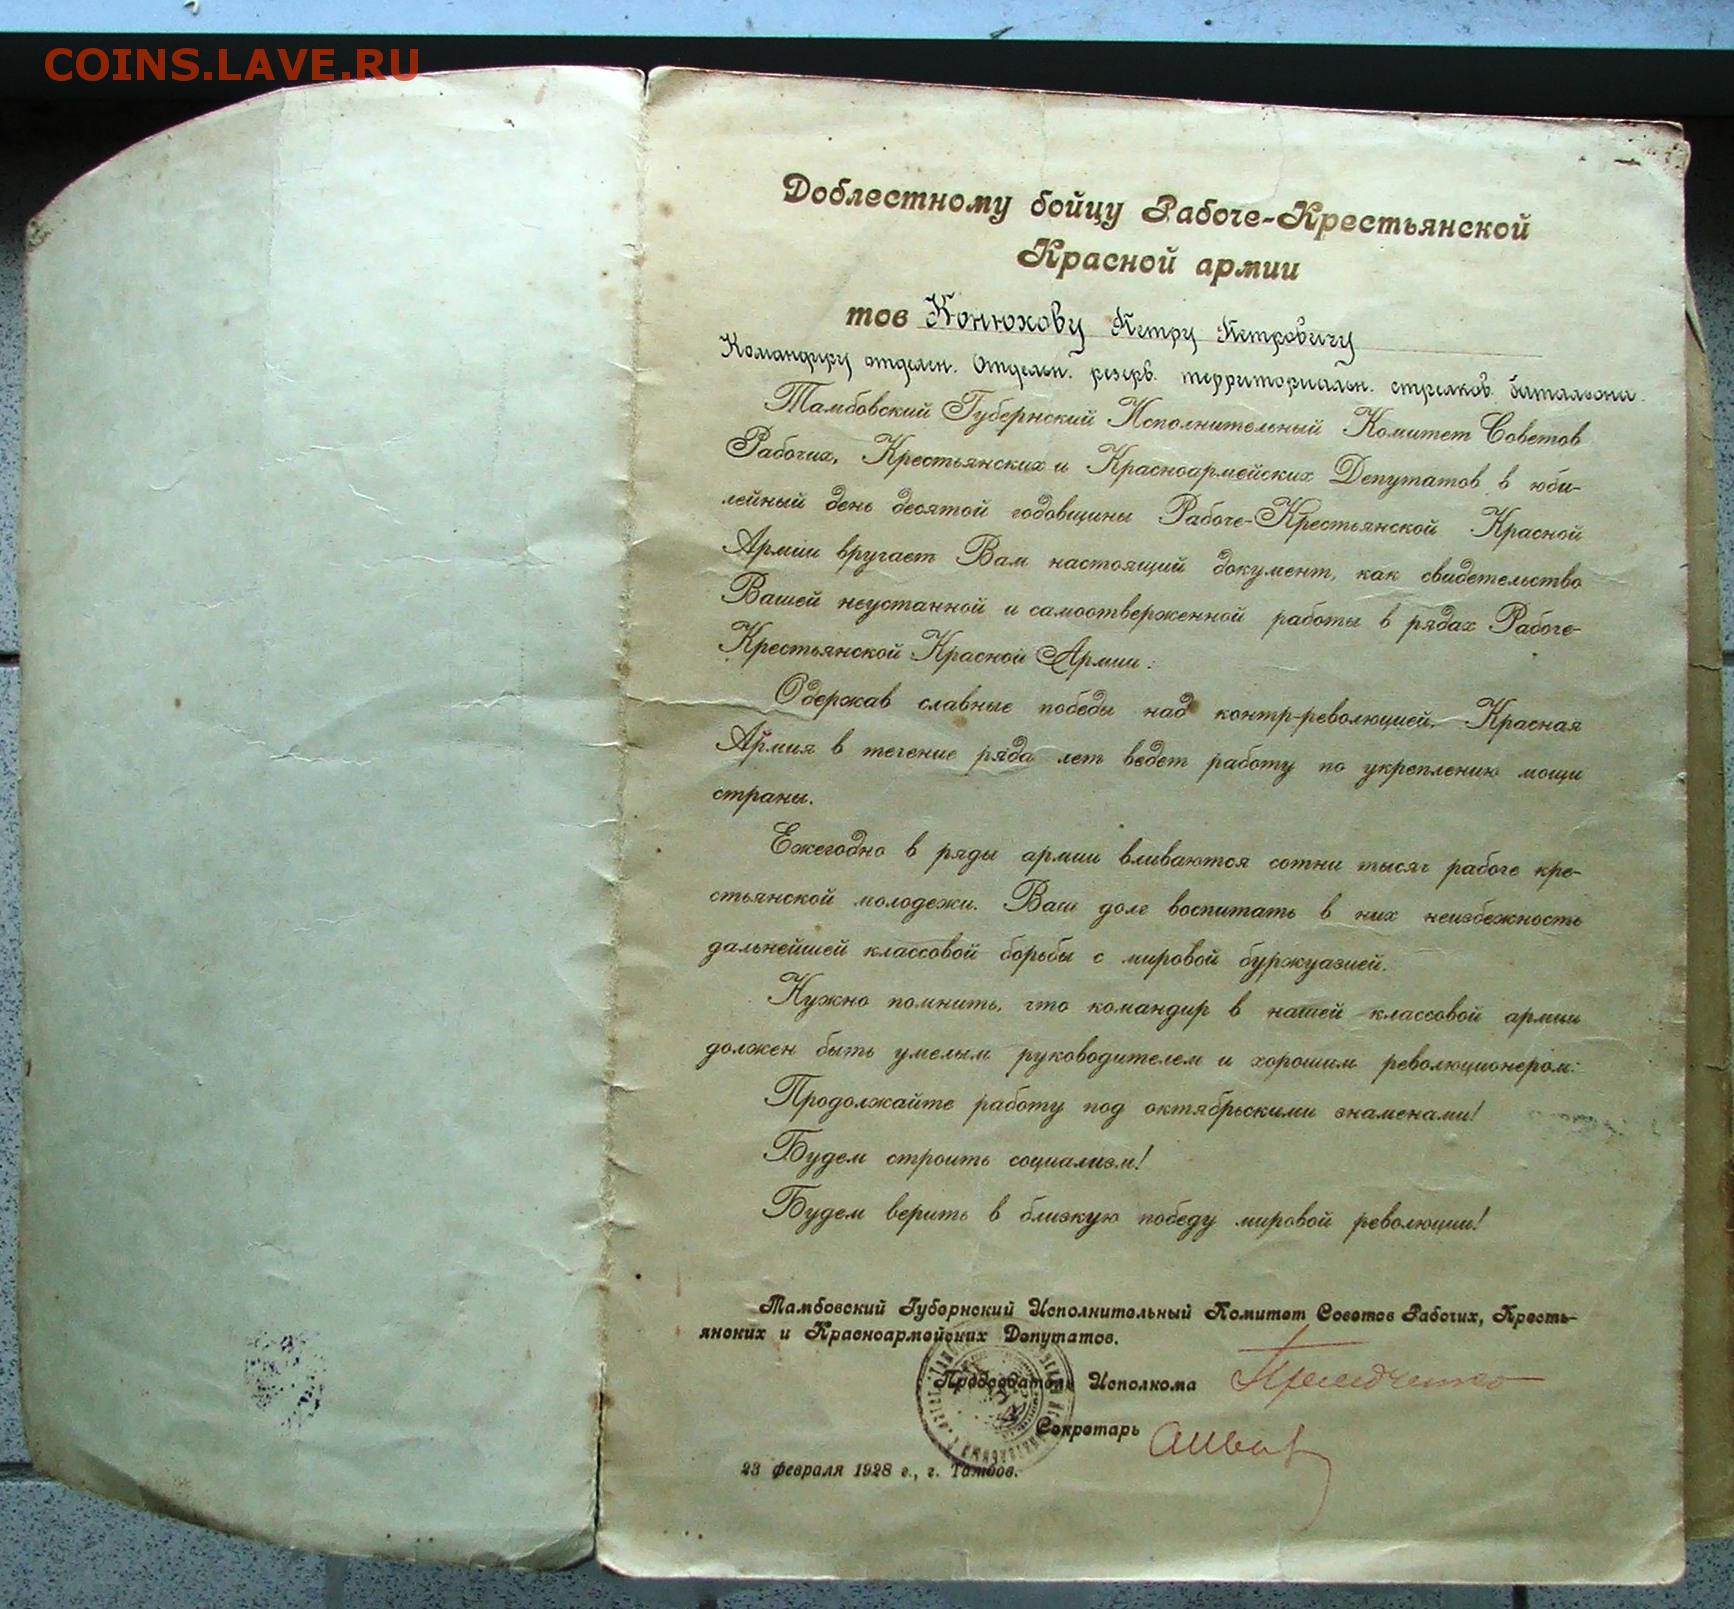 COINS.LAVE.RU
Доблестному бойцу Рабоче-Крестьянской
Красной армии
тов Конюхову Петру Петровичу
Командиру отделен. Отдельн. резерв. территориальн. стрелков. батальона.
Тамбовский Губернский Исполнительный Комитет Советов
Рабочих, Крестьянских и Красноармейских Депутатов в юби-
лейный день десятой годовщины Рабоче-Крестьянской Красной
Армии вручает Вам настоящий документ, как свидетельство
Вашей неустанной и самоотверженной работы в рядах Рабоче-
Крестьянской Красной Армии.
Одержав славные победы над контр-революцией. Красная
Армия в течение ряда лет ведет работу по укреплению мощи
страны.
Ежегодно в ряды армии вливаются сотни тысяч рабоче кре-
стьянской молодежи. Ваш долг воспитать в них неизбежность
дальнейшей классовой борьбы с мировой буржуазией.
Нужно помнить, что командир в нашей классовой армии
должен быть умелым руководителем и хорошим революционером.
Продолжайте работу под октябрьскими знаменами!
Будем строить социализм!
Будем верить в близкую победу мировой революции!
Тамбовский Губернский Исполнительный Комитет Советов Рабочих, Кресть-
янских и Красноармейских Депутатов.
Председатель Исполкома
Секретарь
23 февраля 1928 г., г. Тамбов.